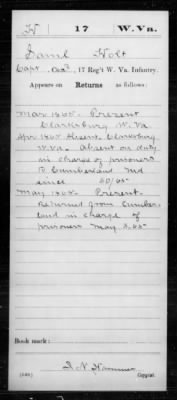 H 17 W. Va.
Daniel Holt
Capt., Co. A, 17 Reg't W. Va. Infantry.
Appears on Returns as follows:
Mar 1865. Present
Clarksburg W. Va.
Apr 1865 Absent Clarksburg
W. Va. Absent on duty
in charge of prisoners
to Cumberland Md
since 30/65
May 1865. Present.
Returned from Cumber-
land in charge of
prisoners May 3.65
Book mark:
(546) Copyist.